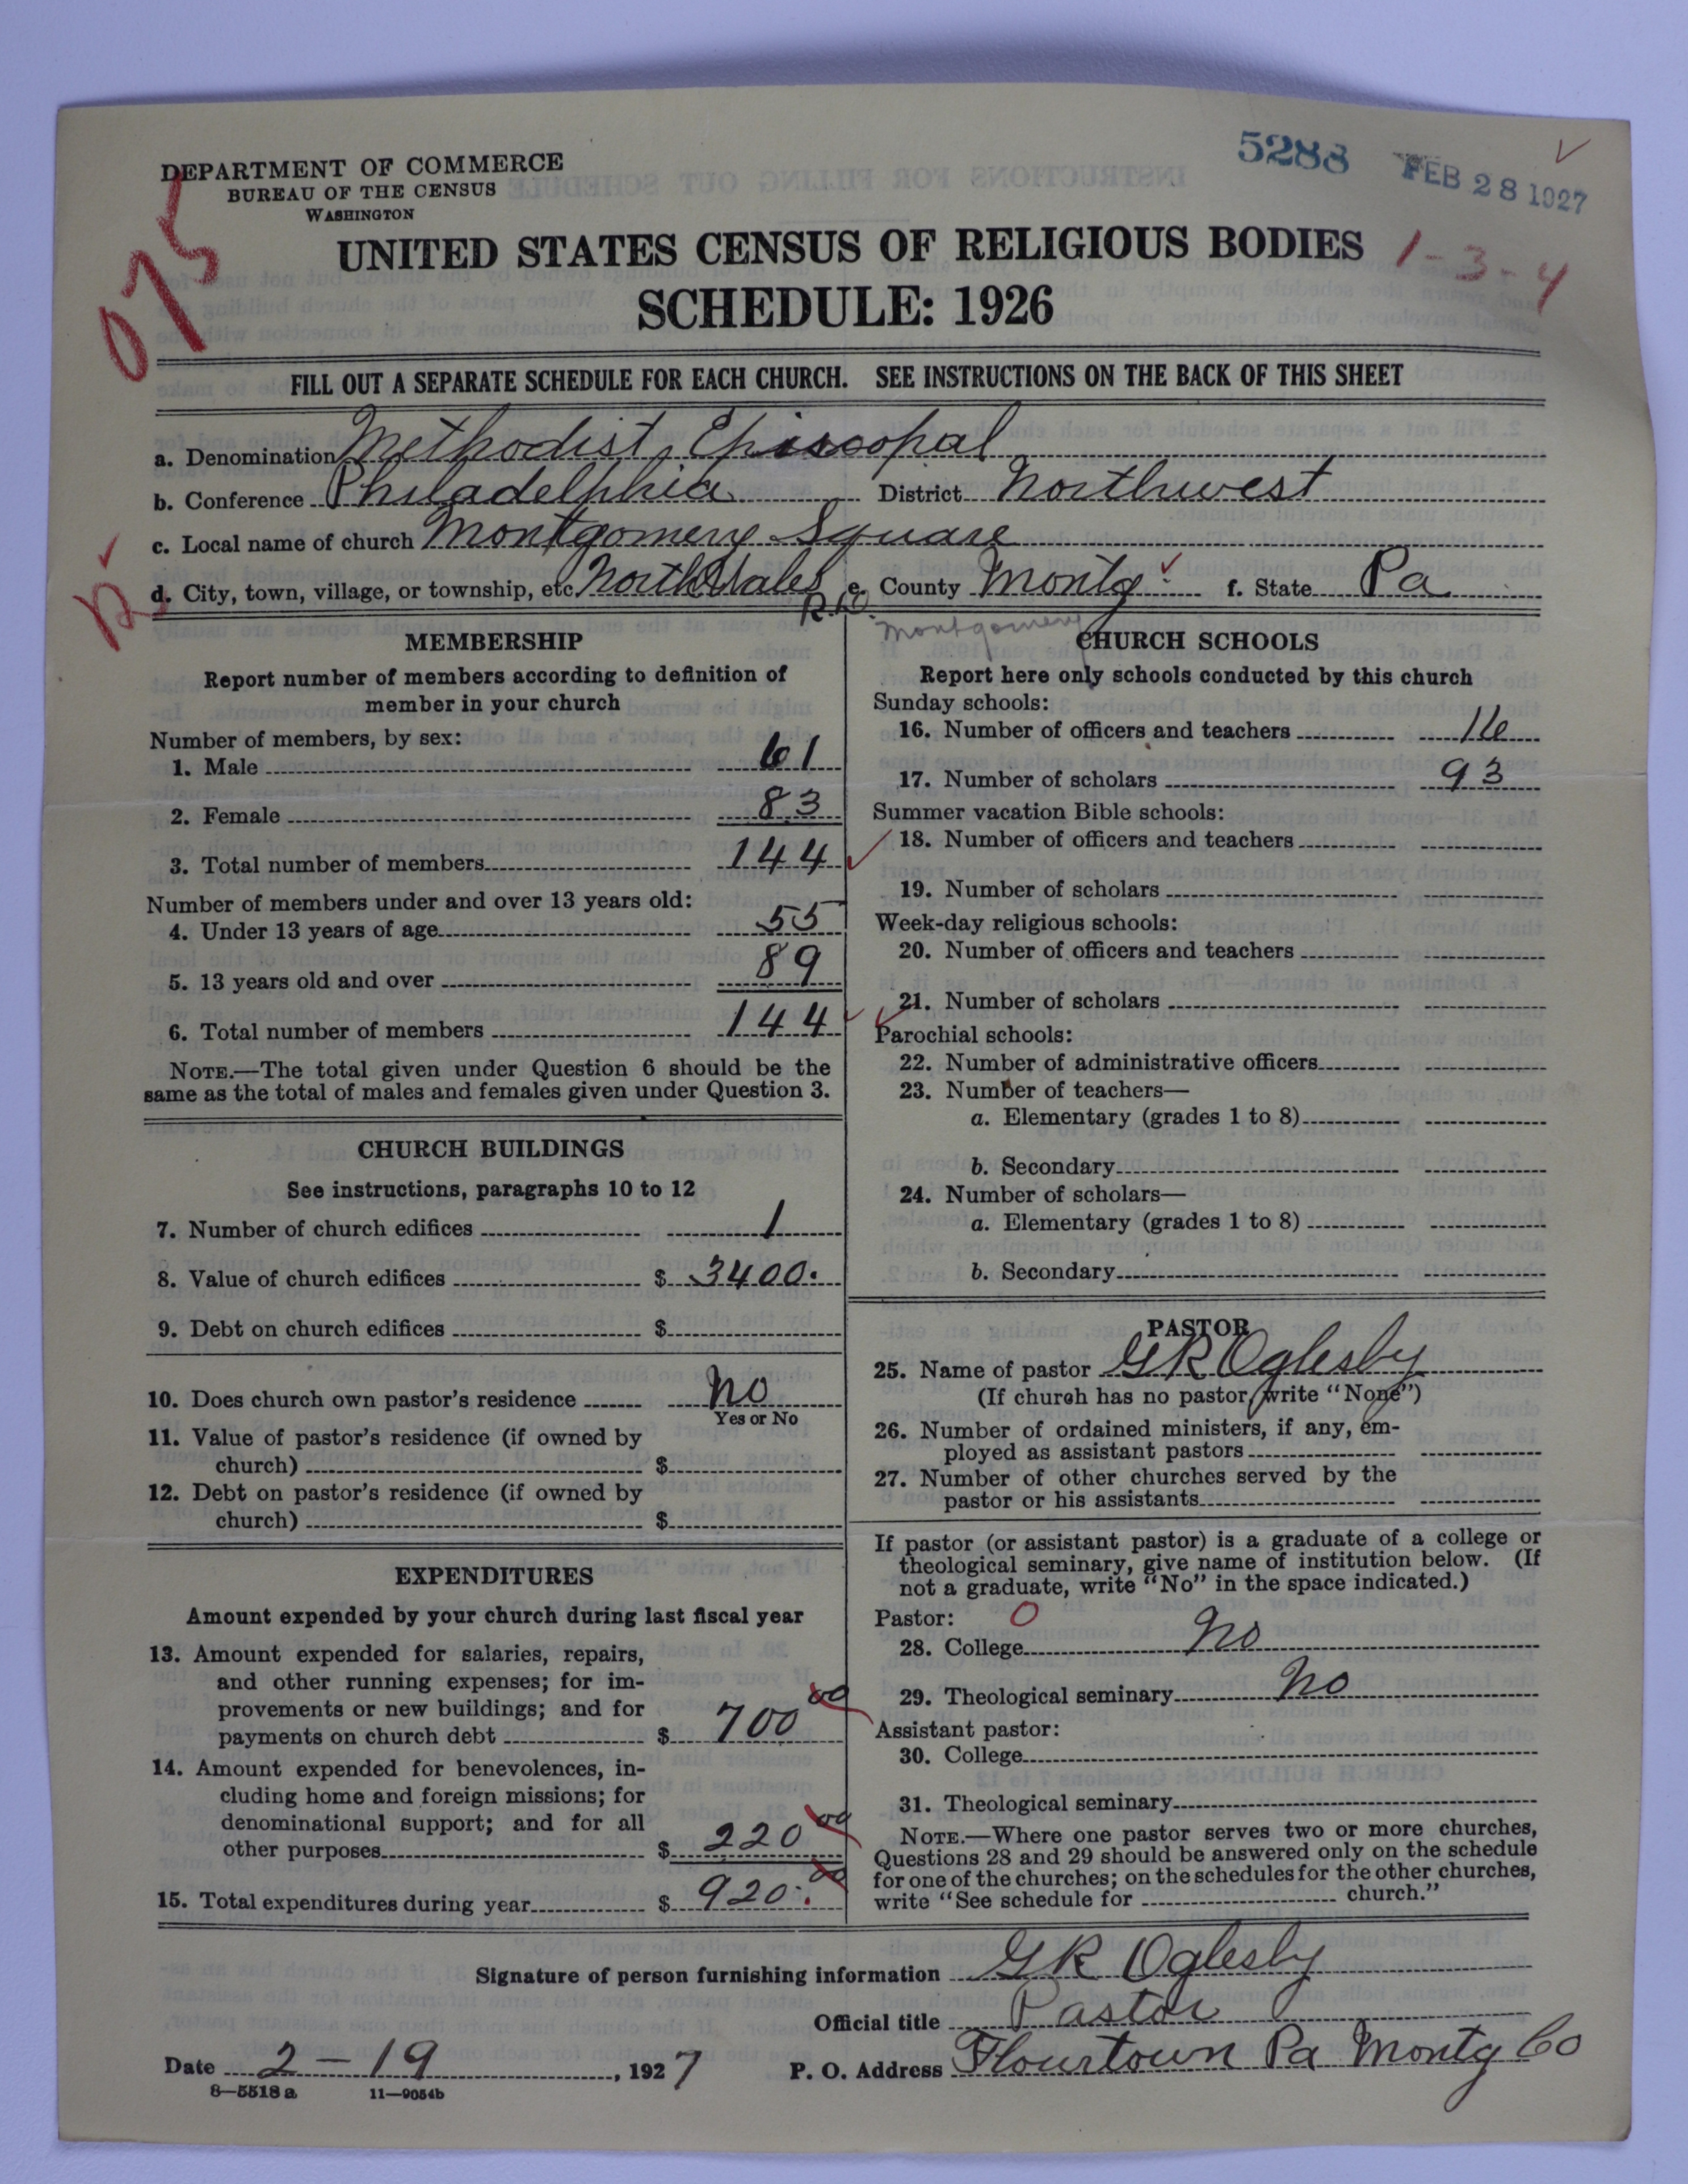 5288
FEB 28 1927
DEPARTMENT OF COMMERCE
BUREAU OF THE CENSUS
WASHINGTON
075
UNITED STATES CENSUS OF RELIGIOUS BODIES
1-3-4
SCHEDULE: 1926
FILL OUT A SEPARATE SCHEDULE FOR EACH CHURCH. SEE INSTRUCTIONS ON THE BACK OF THIS SHEET
a. Denomination Methodist Episcopal
b. Conference Philadelphia District Northwest
c. Local name of church Montgomery Square
d. City, town, village, or township, etc. North Wales e. County Montg f. State Pa
Montgomery
MEMBERSHIP
Report number of members according to definition of
member in your church
Number of members, by sex:
1. Male 61
2. Female 83
3. Total number of members 144
Number of members under and over 13 years old:
4. Under 13 years of age 55
5. 13 years old and over 89
6. Total number of members 144
NOTE.—The total given under Question 6 should be the
same as the total of males and females given under Question 3.
CHURCH BUILDINGS
See instructions, paragraphs 10 to 12
7. Number of church edifices 1
8. Value of church edifices $ 3400.
9. Debt on church edifices $
10. Does church own pastor's residence No
Yes or No
11. Value of pastor's residence (if owned by
church) $
12. Debt on pastor's residence (if owned by
church) $
EXPENDITURES
Amount expended by your church during last fiscal year
13. Amount expended for salaries, repairs,
and other running expenses; for im-
provements or new buildings; and for
payments on church debt $ 700 00
14. Amount expended for benevolences, in-
cluding home and foreign missions; for
denominational support; and for all
other purposes $ 220 00
15. Total expenditures during year $ 920. 00
CHURCH SCHOOLS
Report here only schools conducted by this church
Sunday schools:
16. Number of officers and teachers 16
17. Number of scholars 93
Summer vacation Bible schools:
18. Number of officers and teachers
19. Number of scholars
Week-day religious schools:
20. Number of officers and teachers
21. Number of scholars
Parochial schools:
22. Number of administrative officers
23. Number of teachers—
a. Elementary (grades 1 to 8)
b. Secondary
24. Number of scholars—
a. Elementary (grades 1 to 8)
b. Secondary
PASTOR
25. Name of pastor G R Oglesby
(If church has no pastor, write "None")
26. Number of ordained ministers, if any, em-
ployed as assistant pastors
27. Number of other churches served by the
pastor or his assistants
If pastor (or assistant pastor) is a graduate of a college or
theological seminary, give name of institution below. (If
not a graduate, write "No" in the space indicated.)
Pastor: 0
28. College No
29. Theological seminary No
Assistant pastor:
30. College
31. Theological seminary
NOTE.—Where one pastor serves two or more churches,
Questions 28 and 29 should be answered only on the schedule
for one of the churches; on the schedules for the other churches,
write "See schedule for church."
Signature of person furnishing information G R Oglesby
Official title Pastor
Date 2-19, 1927 P. O. Address Flourtown Pa Montg Co
8—5518 a 11—9054b